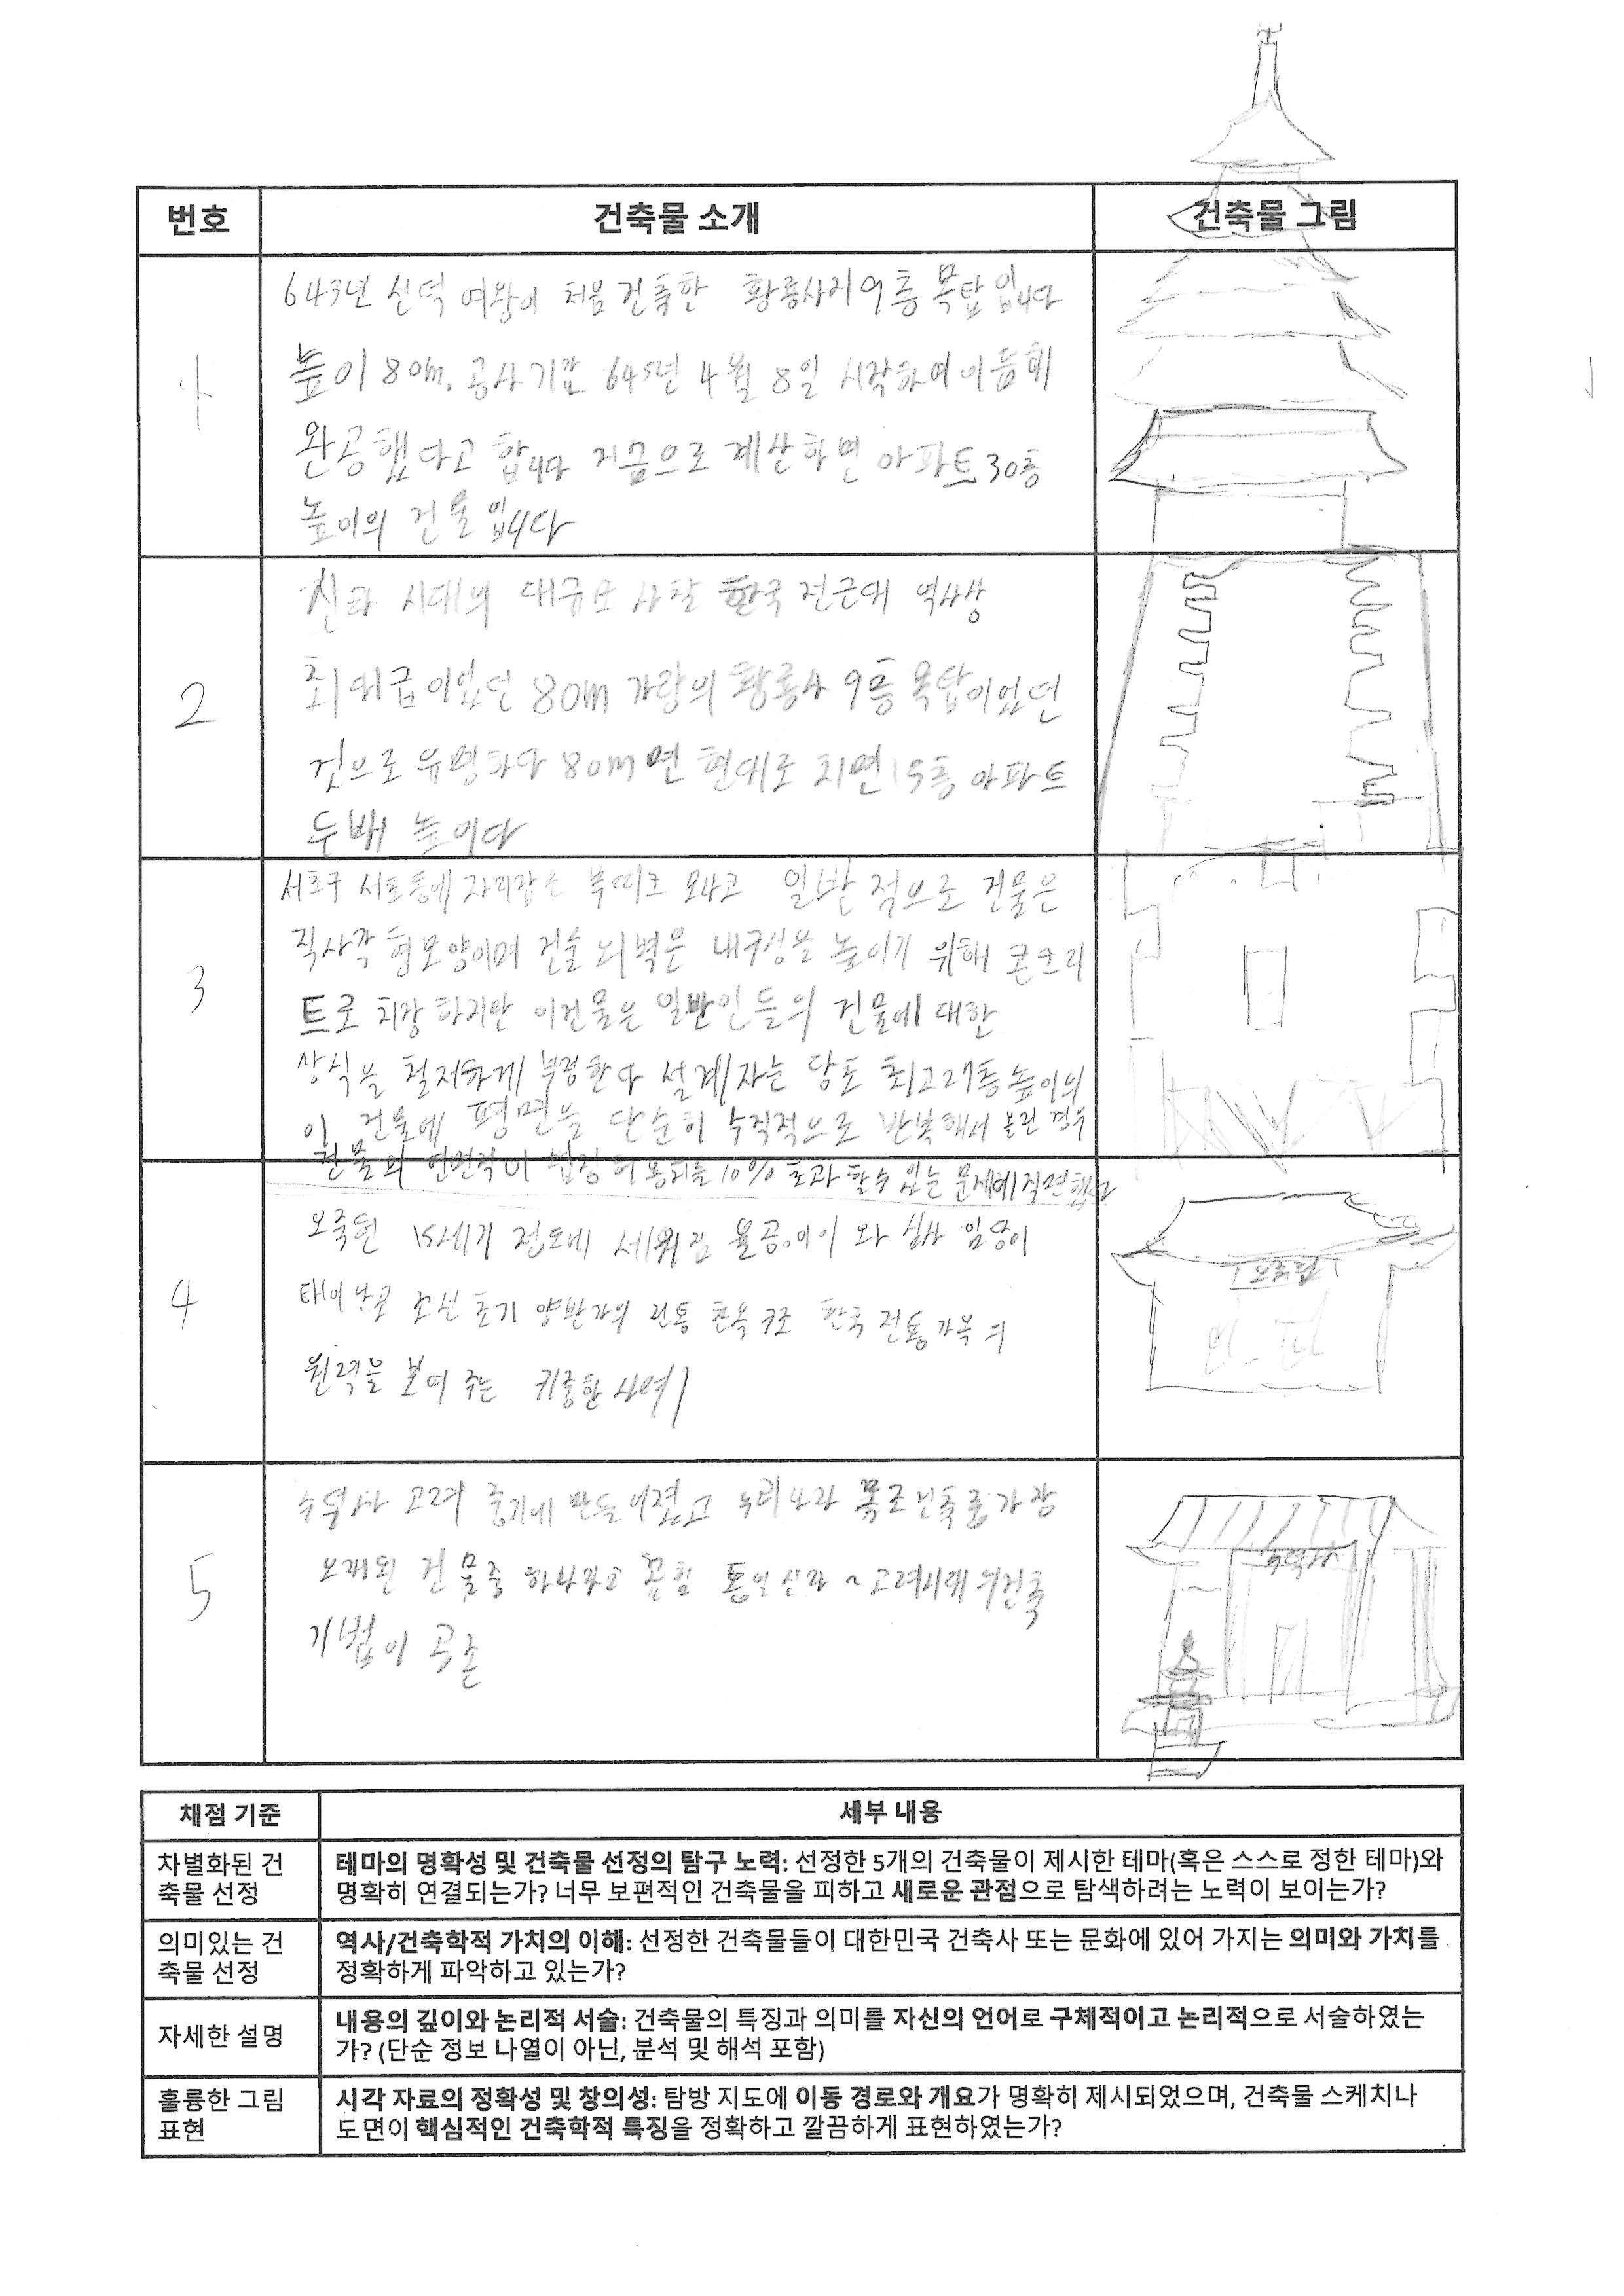 번호 건축물 소개 건축물 그림
1
643년 선덕 여왕이 처음 건축한 황룡사지 9층 목탑입니다
높이 80m. 공사기간 645년 4월 8일 시작하여 이듬해
완공했다고 합니다 지금으로 계산하면 아파트 30층
높이의 건물입니다
2
신라 시대의 대규모 사찰 한국 전근대 역사상
최대급이었던 80m 가량의 황룡사 9층 목탑이있던
것으로 유명하다 80m면 현대로 치면 15층 아파트
두배 높이다
3
서초구 서초동에 자리잡은 부띠크 모나코 일반적으로 건물은
직사각형모양이며 건물 외벽은 내구성을 높이기 위해 콘크리
트로 치장하지만 이건물은 일반인들의 건물에 대한
상식을 철저하게 부정한다 설계자는 당초 최고 27층 높이의
이 건물에 평면을 단순히 수직적으로 반복해서 올린 경우
건물의 연면적이 법정 10% 초과 할수 있는 문제에 직면했고
4
오죽헌 15세기 세워진 율곡 이이 와 신사임당이
태어난곳 조선 초기 양반가의 전통 한옥 구조 한국 전통가옥의
원력을 보여 주는 귀중한 사례
오죽헌
5
수덕사 고려 중기에 만들어졌고 우리나라 목조건축중가장
오래된 건물중 하나라고 꼽힘 통일신라 ~ 고려시대 의건축
기법이 공존
수덕사
채점 기준 세부 내용
차별화된 건
축물 선정
테마의 명확성 및 건축물 선정의 탐구 노력: 선정한 5개의 건축물이 제시한 테마(혹은 스스로 정한 테마)와
명확히 연결되는가? 너무 보편적인 건축물을 피하고 새로운 관점으로 탐색하려는 노력이 보이는가?
의미있는 건
축물 선정
역사/건축학적 가치의 이해: 선정한 건축물들이 대한민국 건축사 또는 문화에 있어 가지는 의미와 가치를
정확하게 파악하고 있는가?
자세한 설명
내용의 깊이와 논리적 서술: 건축물의 특징과 의미를 자신의 언어로 구체적이고 논리적으로 서술하였는
가? (단순 정보 나열이 아닌, 분석 및 해석 포함)
훌륭한 그림
표현
시각 자료의 정확성 및 창의성: 탐방 지도에 이동 경로와 개요가 명확히 제시되었으며, 건축물 스케치나
도면이 핵심적인 건축학적 특징을 정확하고 깔끔하게 표현하였는가?